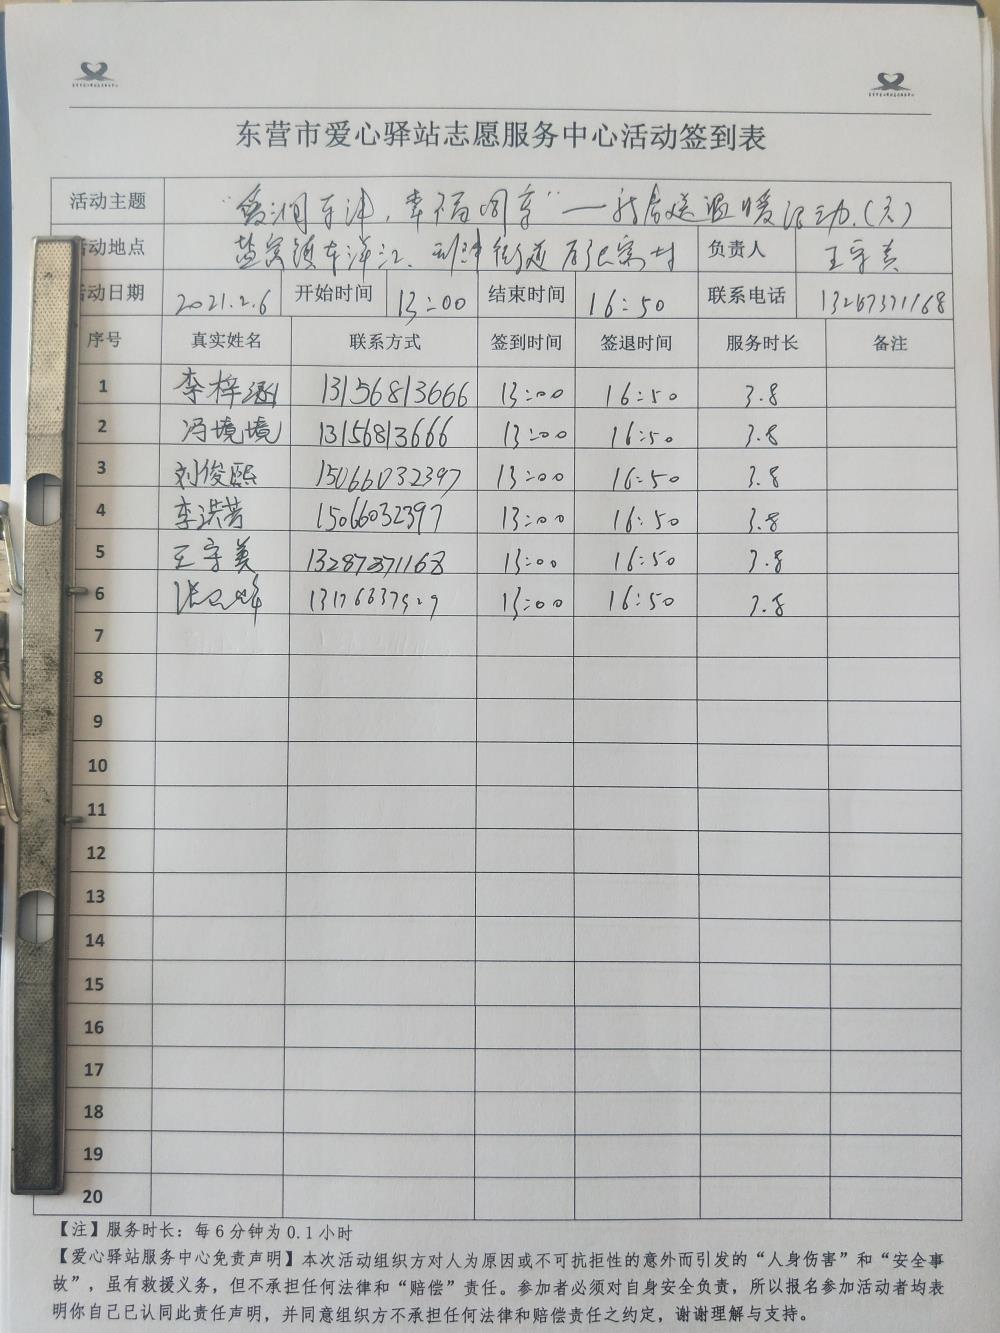 东营市爱心驿站志愿服务中心活动签到表
活动主题 东津,幸福同享”—转 送温暖活动.(六)
活动地点 盐窝镇东洋江、 街道 村 负责人 王守美
活动日期 2021.2.6 开始时间 13:00 结束时间 16:50 联系电话 13287371168
序号 真实姓名 联系方式 签到时间 签退时间 服务时长 备注
1 李梓涵 13156813666 13:00 16:50 3.8
2 冯境境 13156813666 13:00 16:50 3.8
3 刘俊熙 15066032397 13:00 16:50 3.8
4 李洪芳 15066032397 13:00 16:50 3.8
5 王守美 13287371168 13:00 16:50 3.8
6 13:00 16:50 3.8
7
8
9
10
11
12
13
14
15
16
17
18
19
20
【注】服务时长:每6分钟为0.1小时
【爱心驿站服务中心免责声明】本次活动组织方对人为原因或不可抗拒性的意外而引发的“人身伤害”和“安全事
故”,虽有救援义务,但不承担任何法律和“赔偿”责任。参加者必须对自身安全负责,所以报名参加活动者均表
明你自己已认同此责任声明,并同意组织方不承担任何法律和赔偿责任之约定,谢谢理解与支持。